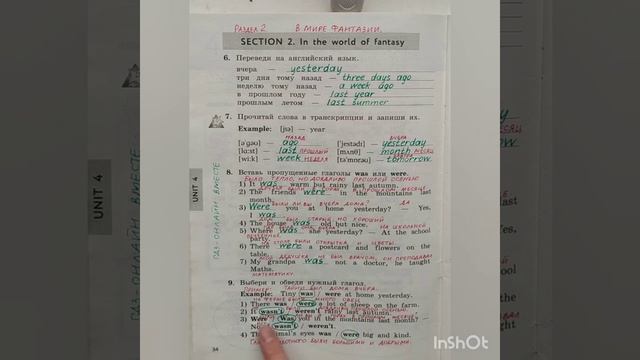 РАЗДЕЛ 2 В МИРЕ ФАНТАЗИИ.
SECTION 2. In the world of fantasy
6. Переведи на английский язык.
вчера — yesterday
три дня тому назад — three days ago
неделю тому назад — a week ago
в прошлом году — last year
прошлым летом — last summer
7. Прочитай слова в транскрипции и запиши их.
Example: [jɪə] — year
НАЗАД ВЧЕРА
[ə'gəʊ] — ago ['jestədɪ] — yesterday
[lɑ:st] — last ПРОШЛЫЙ [mʌnθ] — month МЕСЯЦ
[wi:k] — week НЕДЕЛЯ [tə'mɒrəʊ] — tomorrow
8. Вставь пропущенные глаголы was или were.
БЫЛО ТЕПЛО, НО ДОЖДЛИВО ПРОШЛОЙ ОСЕНЬЮ
1) It was warm but rainy last autumn.
2) The friends were in the mountains last
month.
БЫЛИ ЛИ ВЫ ВЧЕРА ДОМА? ДА
3) Were you at home yesterday? — Yes,
I was.
4) The house was old but nice.
5) Where was she yesterday? — At the school
party.
6) There were a postcard and flowers on the
table.
7) My grandpa was not a doctor, he taught
Maths.
МАТЕМАТИКУ
9. Выбери и обведи нужный глагол.
ПРИМЕР: ТАЙНИ БЫЛ ДОМА ВЧЕРА.
Example: Tiny was / were at home yesterday.
1) There was / were a lot of sheep on the farm.
2) It wasn't / weren't rainy last autumn.
3) Were / Was you in the mountains last month? —
No, wasn't / weren't.
4) The animal's eyes was / were big and kind.
БЫЛИ БОЛЬШИМИ И ДОБРЫМИ.
34
UNIT 4
ГДЗ-ОНЛАЙН ВМЕСТЕ
UNIT 4
ГДЗ-ОНЛАЙН ВМЕСТЕ
InShOt